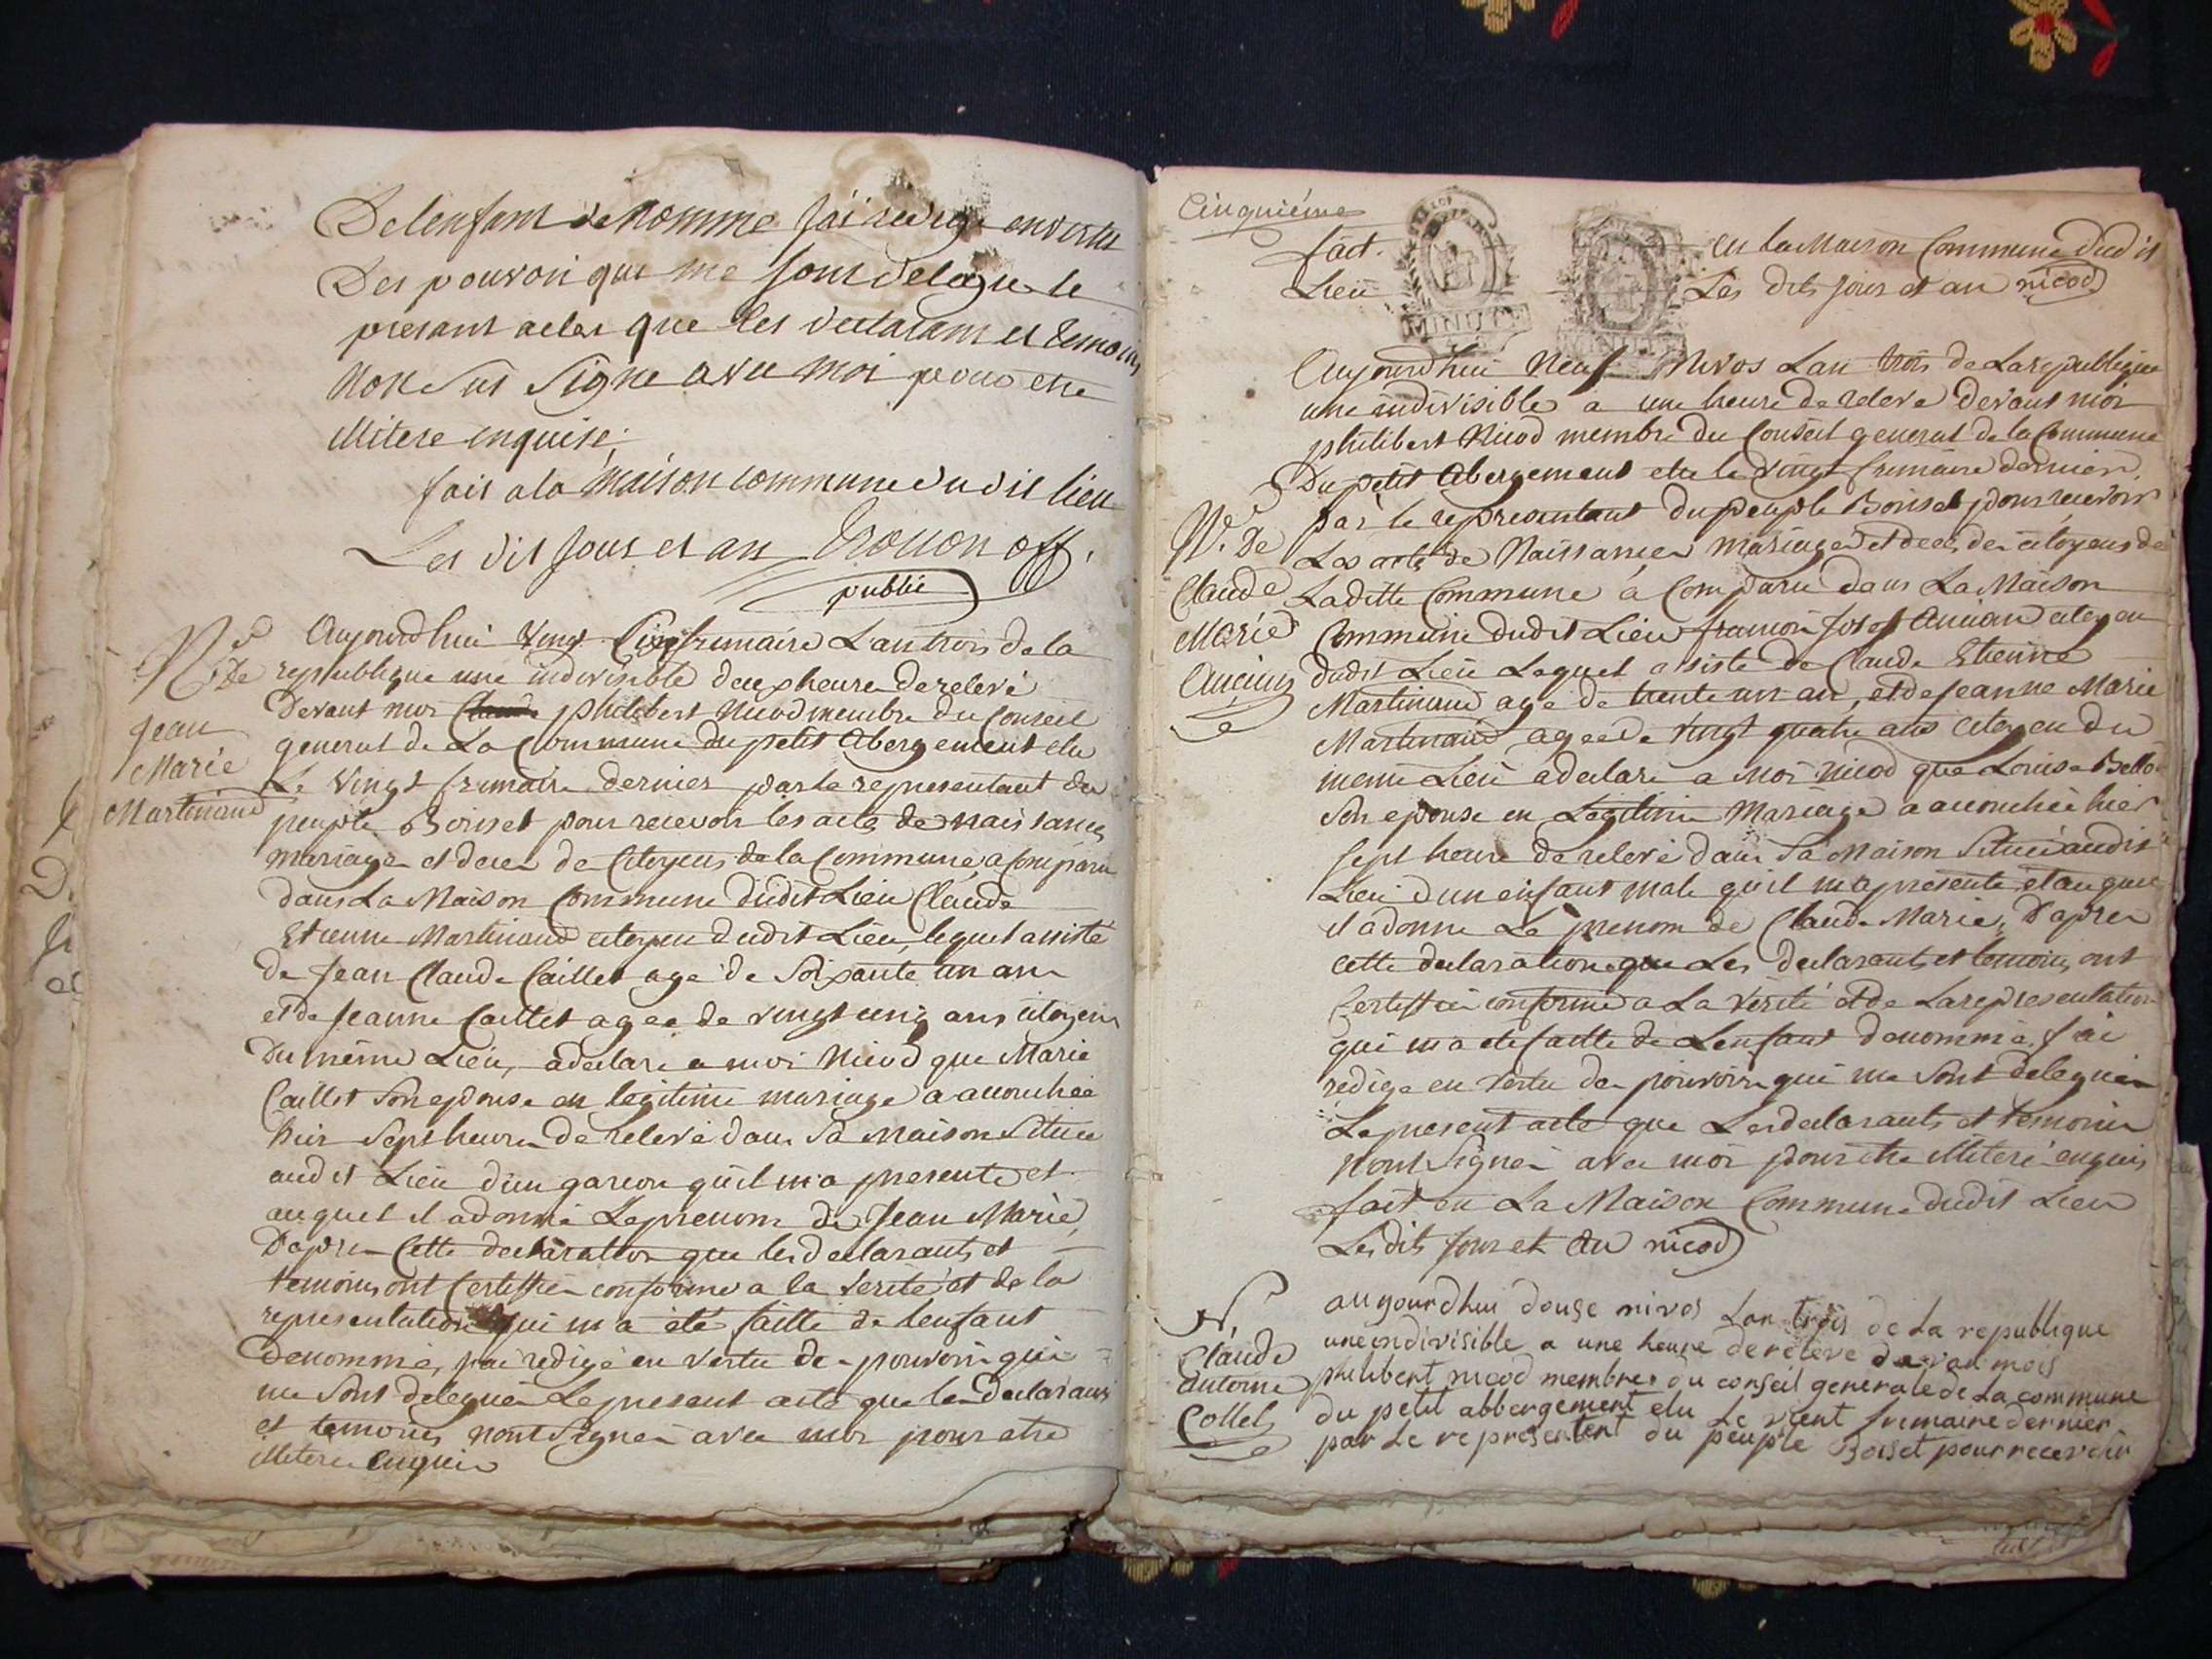 De lenfant denommé jai redigé en vertu
Des pouvoir qui me sont delegue le
presant acte que les declarant et temoins
Non Sut Signe avec moi pour etre
illitere enquise;
fait a la maison commune du dit lieu
Les dit jour et an off.
public
Ne
De
Jean
Marie
Martinand
Aujourdhui vingt Six frimaire L'an trois de la
republique une indivisible deux heure de relevé
Devant moi philibert Nicod membre du Conseil
general de La Commune du petit Abergement elu
Le vingt frimaire dernier par le representant du
peuple Boisset pour recevoir les acte de naissances
mariage et deces de Citoyens de la Commune, a Comparu
dans La Maison Commune dudit Lieu Claude
Etienne Martinand citoyen dudit Lieu, lequel assisté
de Jean Claude Caillet age de Soixante un an
et de Jeanne Caillet agee de vingt cinq ans citoyens
Du même Lieu, a declare a moi Nicod que Marie
Caillet Son epouse en legitime mariage a accouchée
hier Sept heure de relevé dans Sa Maison Situee
audit Lieu d'un garcon quil m'a presenté et
auquel il a donné Le prenom de Jean Marie,
D'apre Cette declaration que les declarants et
temoins ont Certiffié conforme a la verité et de la
representation qui m'a été faitte de lenfant
denommé, j'ai redigé en vertu de pouvoir qui
me Sont delegué Le present acte que les declarans
et temoins n'ont Signé avec moi pour etre
illitere enquis
Cinquiéme
fait en la Maison Commune dudit
Lieu Les dits jour et an nicod
MINUTE
Ne De
Claude
Marie
Aujourdhui Neuf Nivos Lan trois de La republique
une indivisible a une heure de relevé devant moi
philibert Nicod membre du Conseil general de la Commune
Du petit Abergement elu le vingt frimaire dernier
par le representant du peuple Boisset pour recevoir
Les acte de Naissances mariage et deces des citoyens de
Laditte Commune a Comparu dans La Maison
Commune dudit Lieu Josef citoyen
dudit Lieu Lequel asisté de Claude Etienne
Martinand agé de trente un an, et de Jeanne Marie
Martinand, agée de vingt quatre ans citoyen du
meme Lieu a declaré a moi nicod que Louise
Son epouse en Legitime Mariage a accouchée hier
Sept heure de relevé dans Sa Maison Situeé audit
Lieu d'un enfant male quil m'a presenté, et auquel
il a donne Le prenom de Claude Marie, D'apres
cette declaration que Les declarants et temoins ont
Certiffié conforme a La verité et de La representation
qui m'a eté faitte de Lenfant denommé, j'ai
redigé en vertu des pouvoirs qui me Sont delegués
Le present acte que Les declarants et temoins
n'ont Signé avec moi pour etre illiteré enquis
fait en La Maison Commune dudit Lieu
Les dits jour et an nicod
N,
Claude
Antoine
Collet
aujourdhui douse nivos Lan trois de La republique
une endivisible a une heure de relevé devan mois
philibert nicod membre du conseil generale de La commune
du petit abbergement elu Le vient frimaire dernier
par Le representent du peuple Boiset pour recevoir